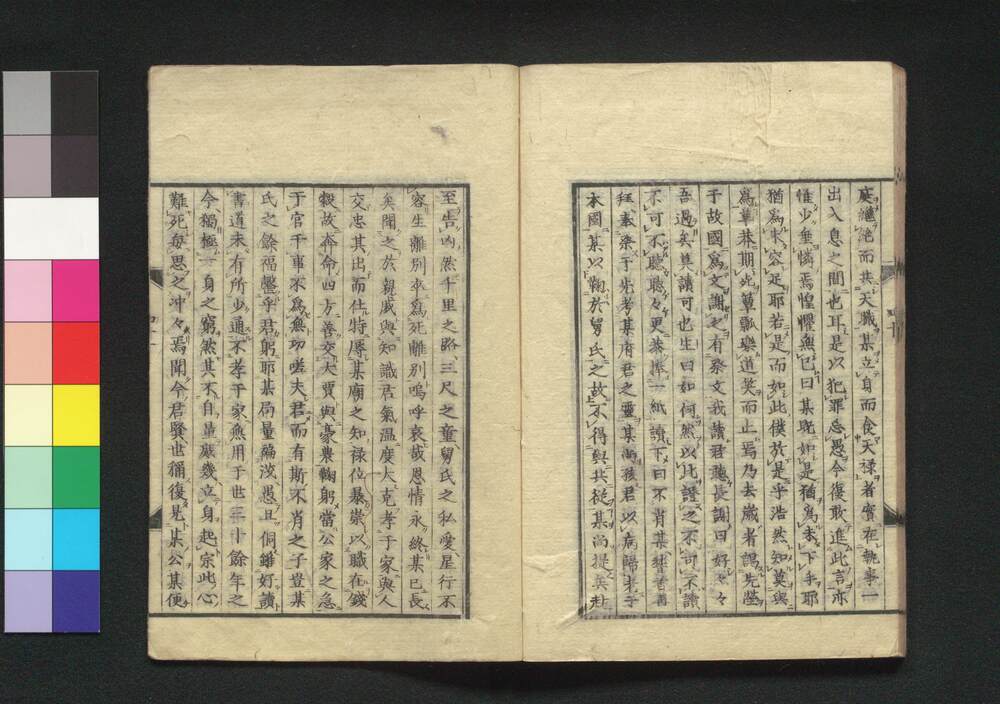 庭繼絶而共天職某立身而食天禄者實在執事一
出入息之間也耳是以犯罪忘愚今復敢進此言亦
惟少垂憐焉惶懼無已曰某既如是猶爲未下手耶
猶爲未容足耶若是而如此僕於是乎浩然知莫與
爲草莽期此簞瓢樂道笑而止焉乃去歳者謁先塋
于故國爲文謝之有祭文我讀君聽長謝曰好々々
吾過矣莫讀可也生曰如何然以此證之不可不讀
不可不聽聽々更恭捧一紙讀下曰不肖某
拜奏柒于先考某府君之靈某尚孩君以病歸老于
本國某以鞠於舅氏之故不得與共從某尚提
至告凶然千里之路三尺之童舅氏之私愛星行不
容生離別卒爲死離別嗚呼哀哉恩情永終某已長
矣聞之於親戚與知識君氣温度大克孝于家與人
交忠其出而仕特辱某廟之知禄位暴崇以職在錢
穀故奔命四方善交大賈與豪農鞠躬當公家之急
于官干事不爲無功嗟夫君而有斯不肖之子豈某
氏之餘福罄乎君躬耶某局量褊淺愚且侗雖好讀
書道未有所少通不孝于家無用于世三十餘年之
今獨極一身之窮然其不自量庶幾立身起宗此心
難死每思之冲々焉聞今君賢世猶復見某公某便